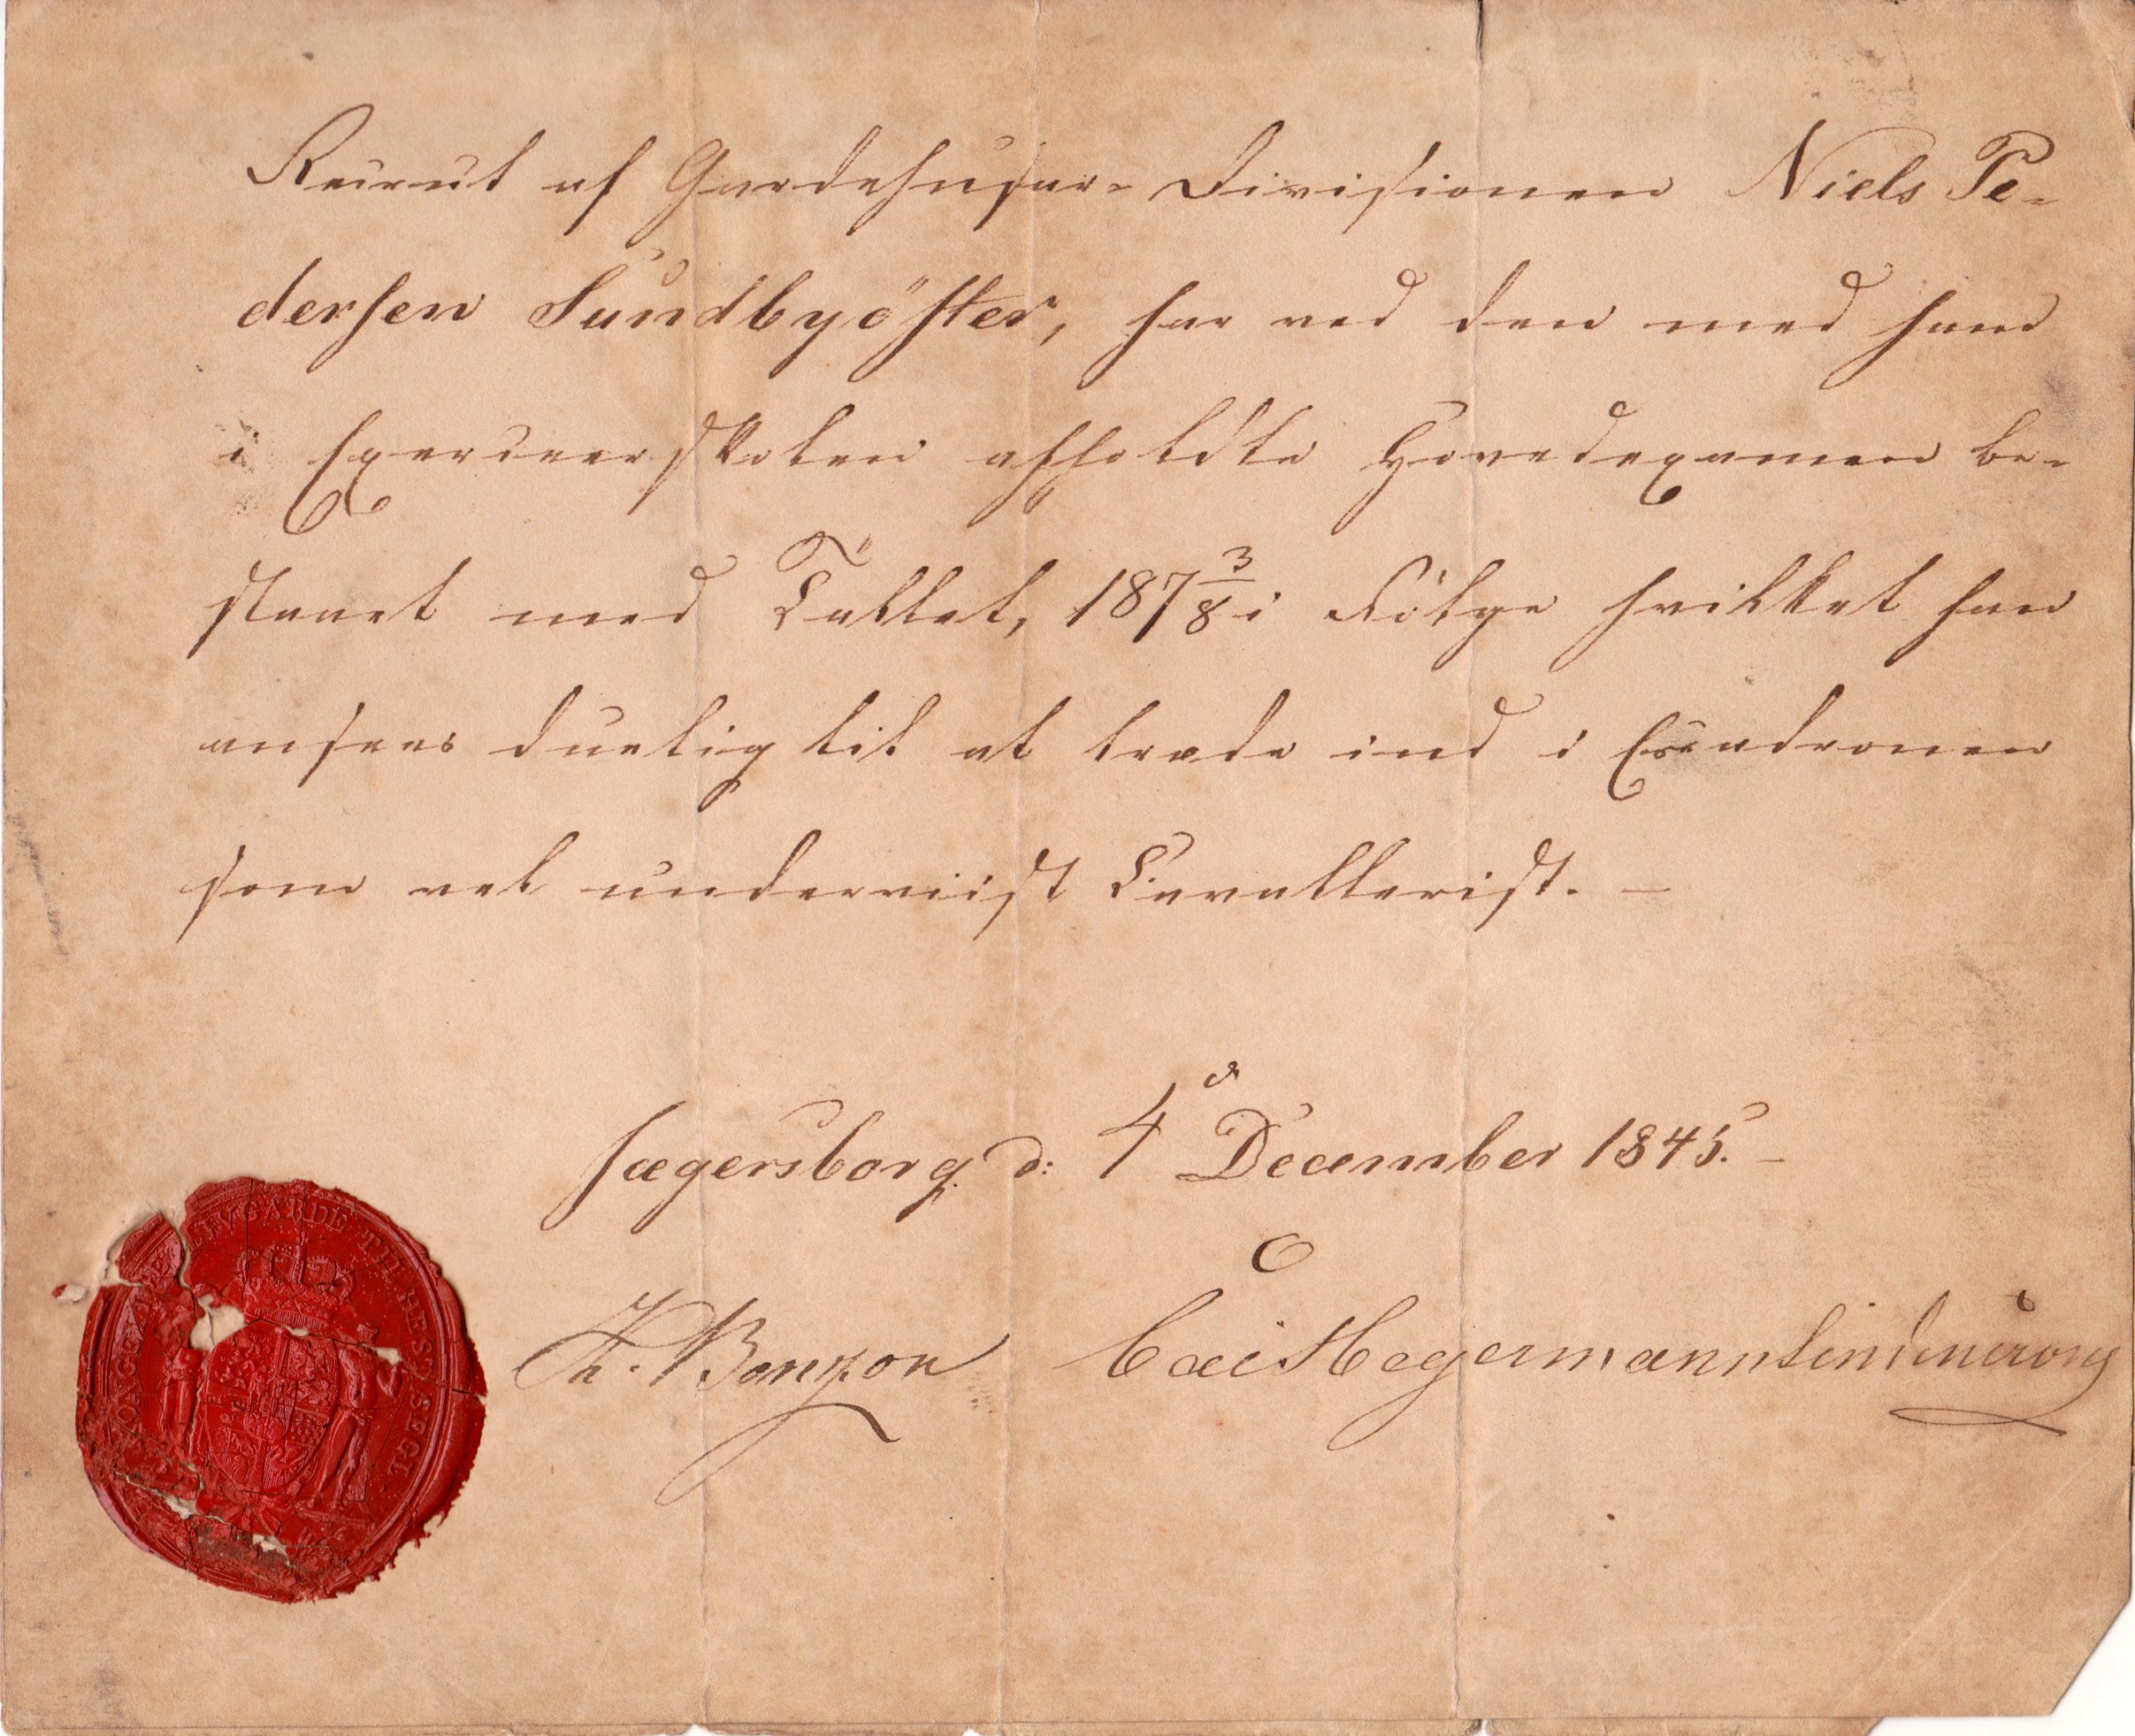 Recrut af Gardehusar-Divisionen Niels Pe-
dersen Sundbyöster, har ved den med ham
i Exerceerskolen afholdte Hovedexamen be-
staaet med Tallet, 187 3/8 i Fölge hvilket han
ansees duelig til at træde ind i Escadronen
som vel underviist Cavallerist. —
Jægersborg d: 4de December 1845. —
Th. Benzon Cai Hegermann Lindencrone
LIVGARDE TIL HEST SEGL